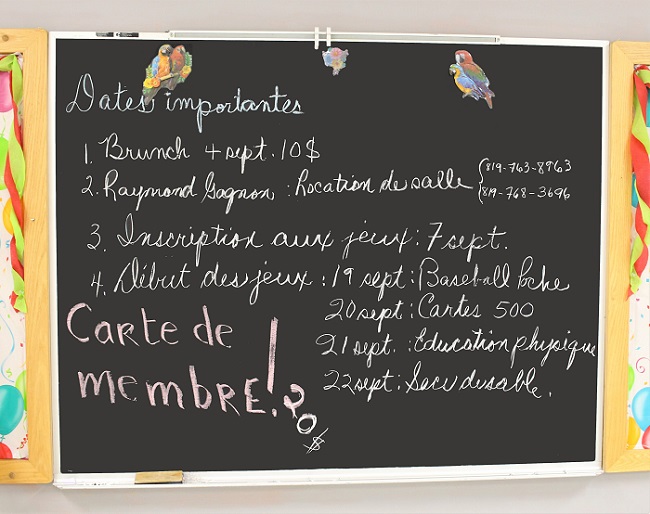 Dates importantes
1. Brunch 4 sept. 10$
2. Raymond Gagnon : Location de salle {819-763-8963
819-768-3696
3. Inscription aux jeux : 7 sept.
4. Début des jeux : 19 sept : Baseball Poche
20 sept : Cartes 500
21 sept. : Éducation physique
22 sept : Sacs de sable.
Carte de
membre! 20$